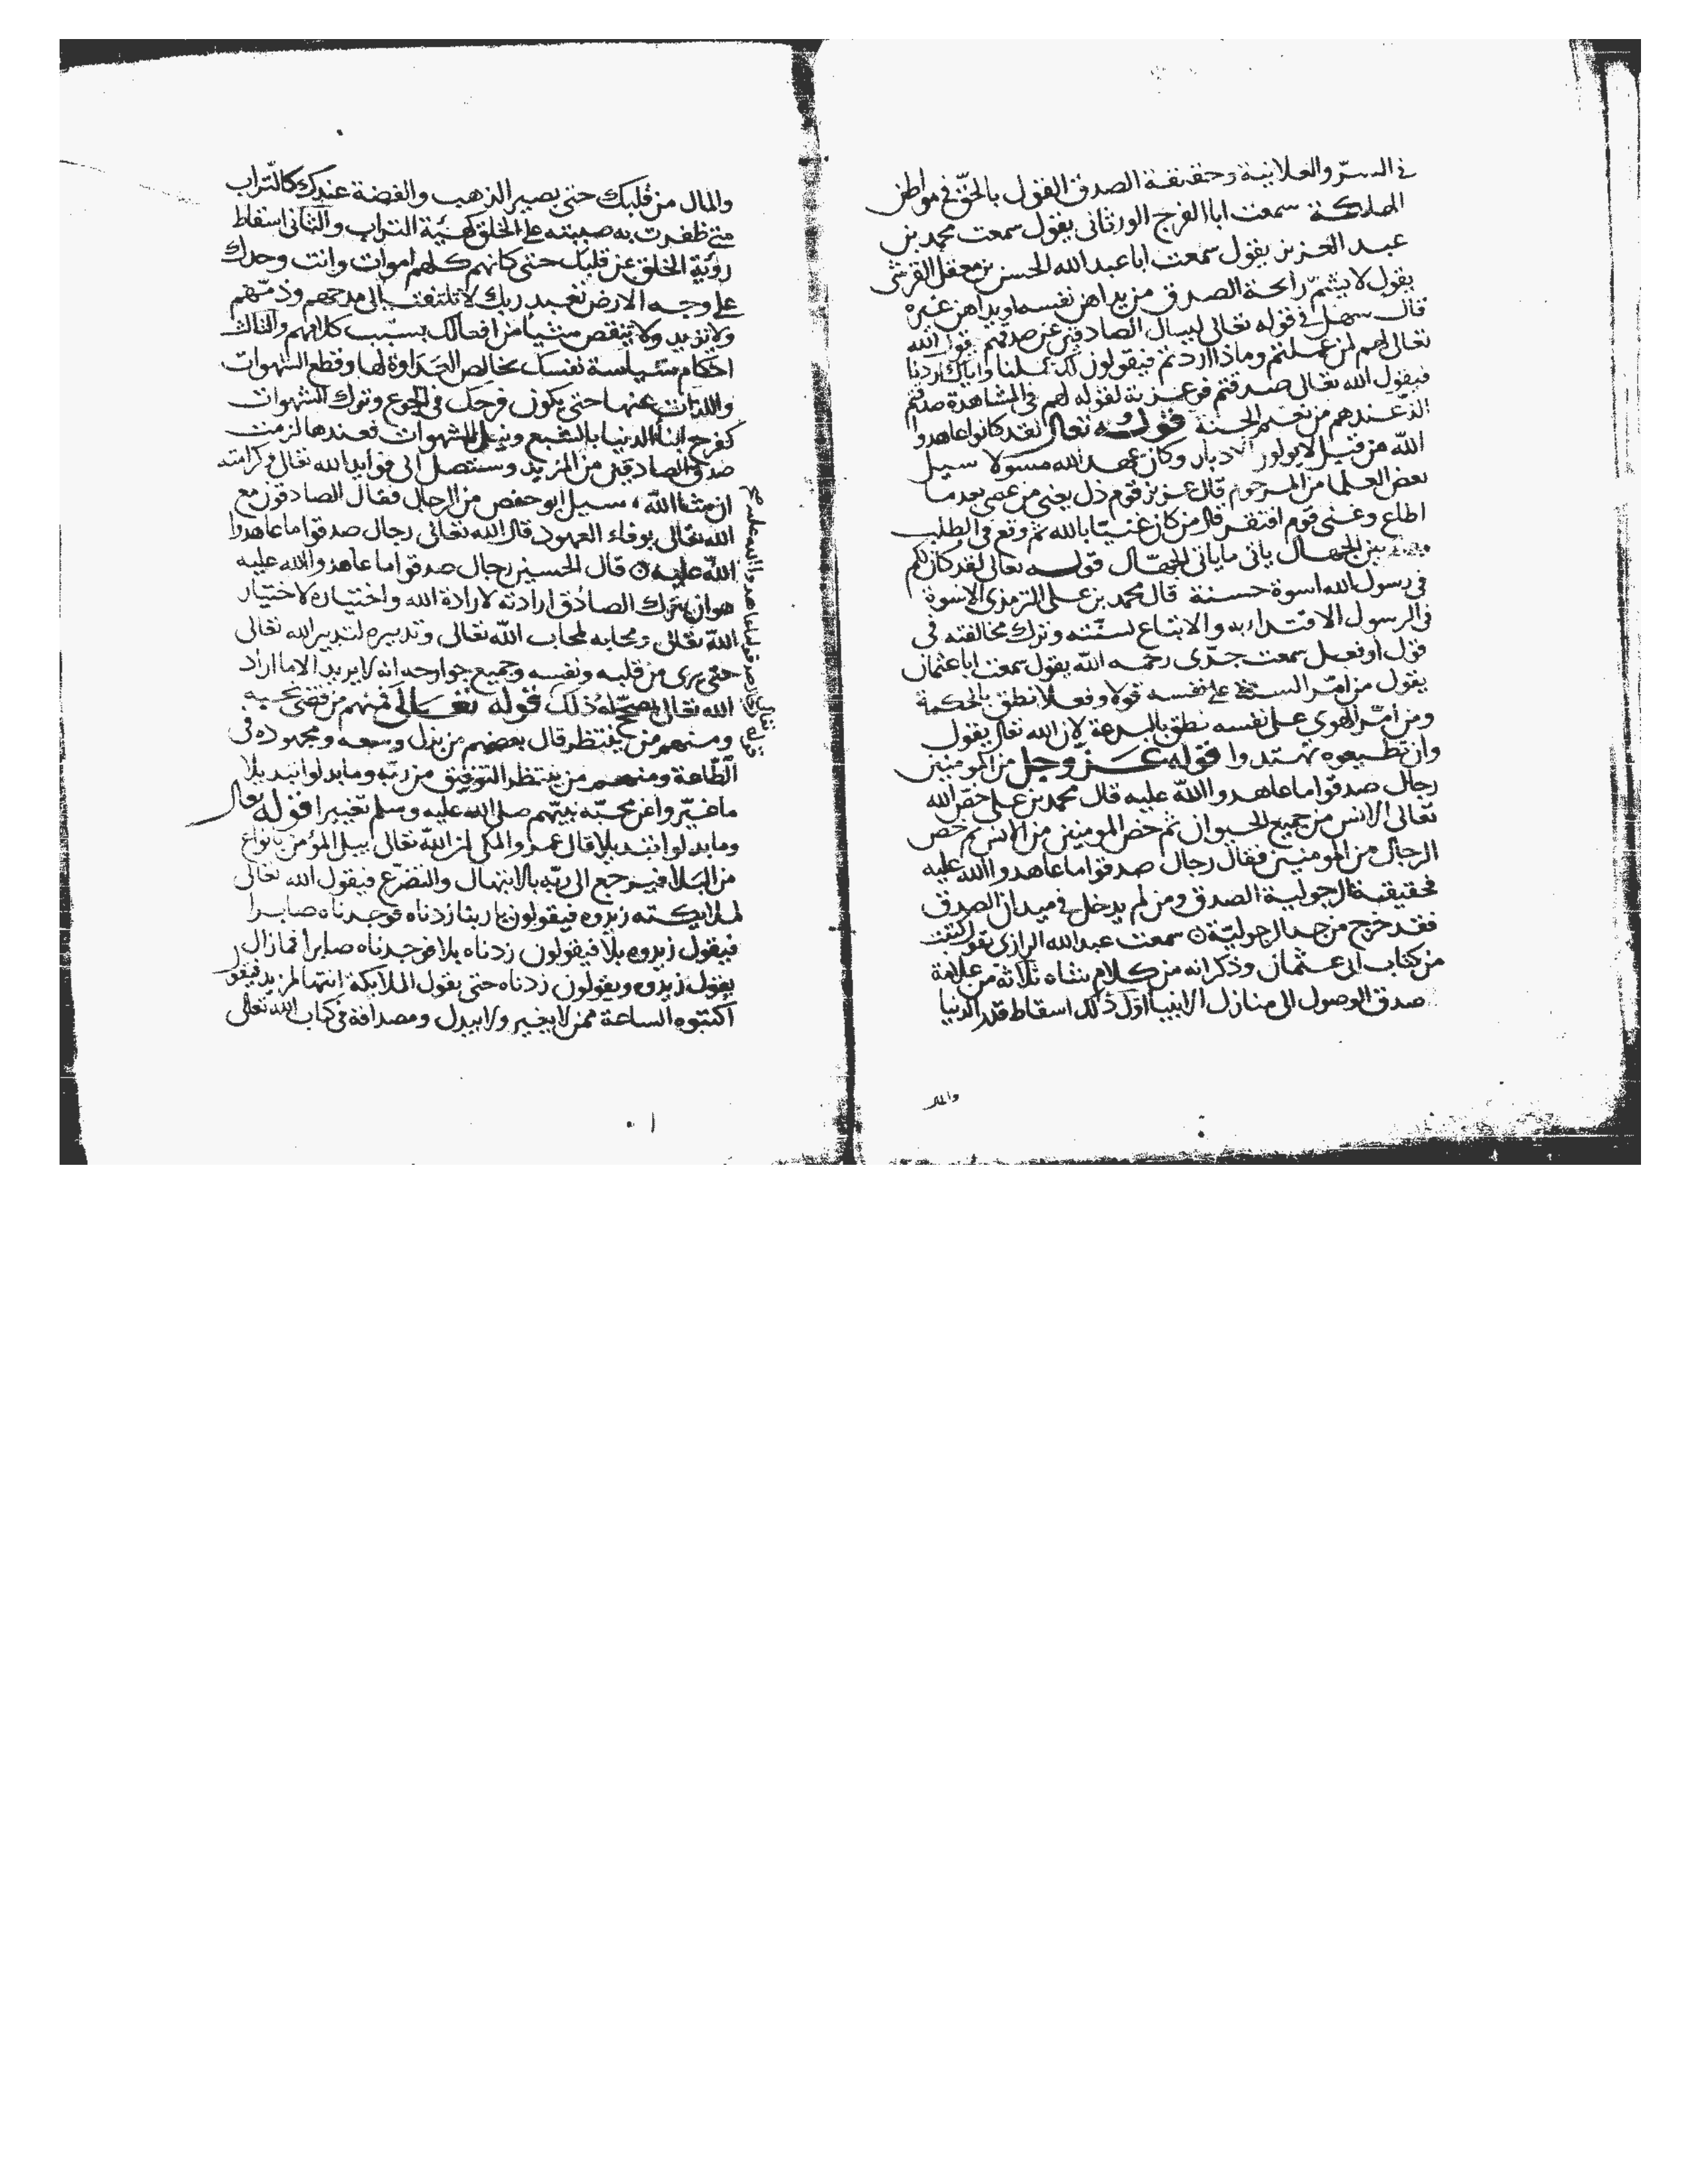 في السرّ والعلانية وحقيقة الصدق القول بالحقّ في مواطن
الهلكة سمعت ابا الفرج الورثاني يقول سمعت محمد بن
عبد العزيز يقول سمعت ابا عبد الله الحسن بن معقل القرشي
يقول لا يشمّ رائحة الصدق من يداهن نفسه او يداهن غيره
قال سهل في قوله تعالى ليسال الصادقين عن صدقهم يقول الله
تعالى لهم لمن عملتم وماذا اردتم فيقولون لك عملنا واياك اردنا
فيقول الله تعالى صدقتم فوعزته لقوله لهم في المشاهدة صدقتم
الذّ عندهم من نعيم الجنة قوله تعالى لقد كانوا عاهدوا
الله من قبل لا يولون الادبار وكان عهد الله مسولا سيل
بعض العلما من المرحوم قال عزيز قوم ذل يعني من عصى بعد ما
اطاع وغنى قوم افتقر قال من كان غنيّا بالله ثم وقع في الطلب
بين الجهال ياتي ماياتي الجهّال قوله تعالى لقد كان لكم
في رسول الله اسوة حسنة قال محمد بن على الترمذى الاسوة
في الرسول الاقتداء به والاتباع لسنّته وترك مخالفته في
قول او فعل سمعت جدّى رحمه الله يقول سمعت ابا عثمان
يقول من امّر السنة على نفسه قولا وفعلا نطق بالحكمة
ومن امّر الهوى على نفسه نطق بالبدعة لان الله تعالى يقول
وان تطيعوه تهتدوا قوله عزّ وجل من المومنين
رجال صدقوا ما عاهدوا الله عليه قال محمد بن على خصّ الله
تعالى الانس من جميع الحيوان ثم خص المومنين من الانس ثم خص
الرجال من المومنين فقال رجال صدقوا ما عاهدوا الله عليه
فحقيقة الرجولية الصدق ومن لم يدخل في ميدان الصدق
فقد خرج من حد الرجوليّة ۞ سمعت عبد الله الرازي يقول كتبت
من كتاب ابى عثمان وذكر انه من كلام شاه ثلاثة من علامة
صدق الوصول الى منازل الانبيا اوّل ذلك اسقاط قدر الدنيا
والمال
والمال من قلبك حتى يصير الذهب والفضة عندك كالتّراب
متى ظفرت به صببته على الخلق كهيّة التراب والثانى اسقاط
رؤية الخلق عن قلبك حتى كانهم كلهم اموات وانت وحدك
على وجه الارض تعبد ربك لا تلتفت الى مدحهم وذمّهم
ولا تزيد ولا تنقص شيأ من افعالك بسبب كلامهم والثالث
احكام سياسة نفسك بخالص العداوة لها وقطع الشهوات
واللذات عنها حتى يكون فرحك في الجوع وترك الشهوات
كفرح ابناء الدنيا بالشبع ونيل الشهوات فعندها لزمت
صدق الصادقين من المريد وستصل الى فوايد الله تعالى وكرامته
ان شا الله سيل ابو حفص من الرجال فقال الصادقون مع
الله تعالى بوفاء العهود قال الله تعالى رجال صدقوا ما عاهدوا
الله عليه ۞ قال الحسين رجال صدقوا ما عاهدوا الله عليه
هو ان يترك الصادق ارادته لارادة الله واختياره لاختيار
الله تعالى ومحابه لمحاب الله تعالى وتدبيره لتدبير الله تعالى
حتى يرى من قلبه ونفسه وجميع جوارحه انه لا يريد الا ما اراد
الله تعالى يصحّ له ذلك قوله تعالى فمنهم من قضى نحبه
ومنهم من ينتظر قال بعضهم من بذل وسعه ومجهوده فى
الطّاعة ومنهم من ينتظر التوفيق من ربّه وما بدلوا تبديلا
ما غيّروا عن محبّه نبيّهم صلى الله عليه وسلم تغييرا قوله تعالى
وما بدلوا تبديلا قال عمرو المكى ان الله تعالى يبلى المؤمن بانواع
من البلا فيرجع الى ربّه بالابتهال والتضرّع فيقول الله تعالى
لملايكته زيدوه فيقولون يا ربنا زدناه فوجدناه صابرا
فيقول زيدوه بلا فيقولون زدناه بلا فوجدناه صابرا فما زال
يقول زيدوه ويقولون زدناه حتى يقول الملايكة انتها المزيد فيقول
اكتبوه الساعة ممن لا يغير ولا يبدل ومصداقه في كتاب الله تعالى
قوله تعالى رجال صدقوا ما عاهدوا الله عليه صح